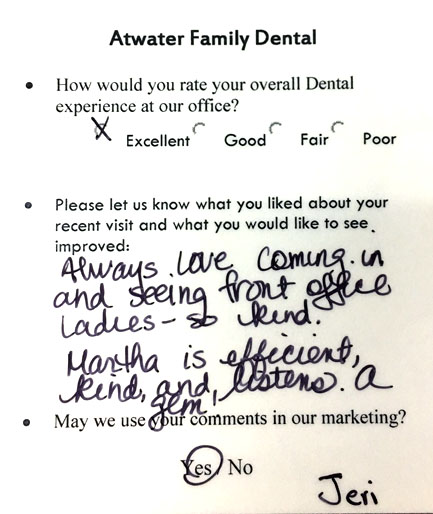 Atwater Family Dental
• How would you rate your overall Dental
experience at our office?
X Excellent Good Fair Poor
• Please let us know what you liked about your
recent visit and what you would like to see
improved:
Always love coming in
and seeing front office
ladies - so kind.
Martha is efficient,
kind, and, listens. a
gem
• May we use your comments in our marketing?
Yes / No
Jeri